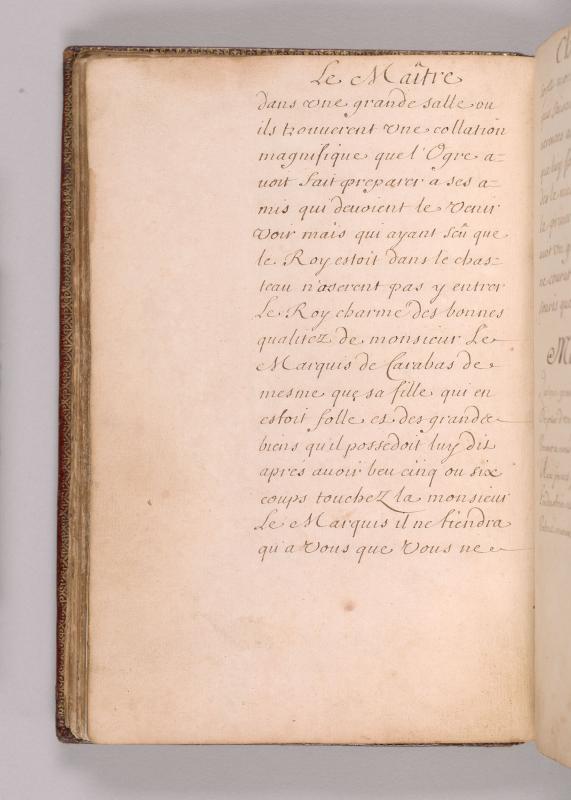 Le Maître
dans une grande salle ou
ils trouuerent une collation
magnifique que l'Ogre a=
uoit fait preparer a ses a=
mis qui deuoient le Venir
Voir mais qui ayant sçû que
le Roy estoit dans le chas=
teau n'oserent pas y entrer
Le Roy charmé des bonnes
qualitez de monsieur Le
Marquis de Carabas de
mesme que sa fille qui en
estoit folle et des grands
biens qu'il possedoit luy dit
aprés auoir beu cinq ou six
coups touchez la monsieur
Le Marquis il ne tiendra
qu'a Vous que Vous ne